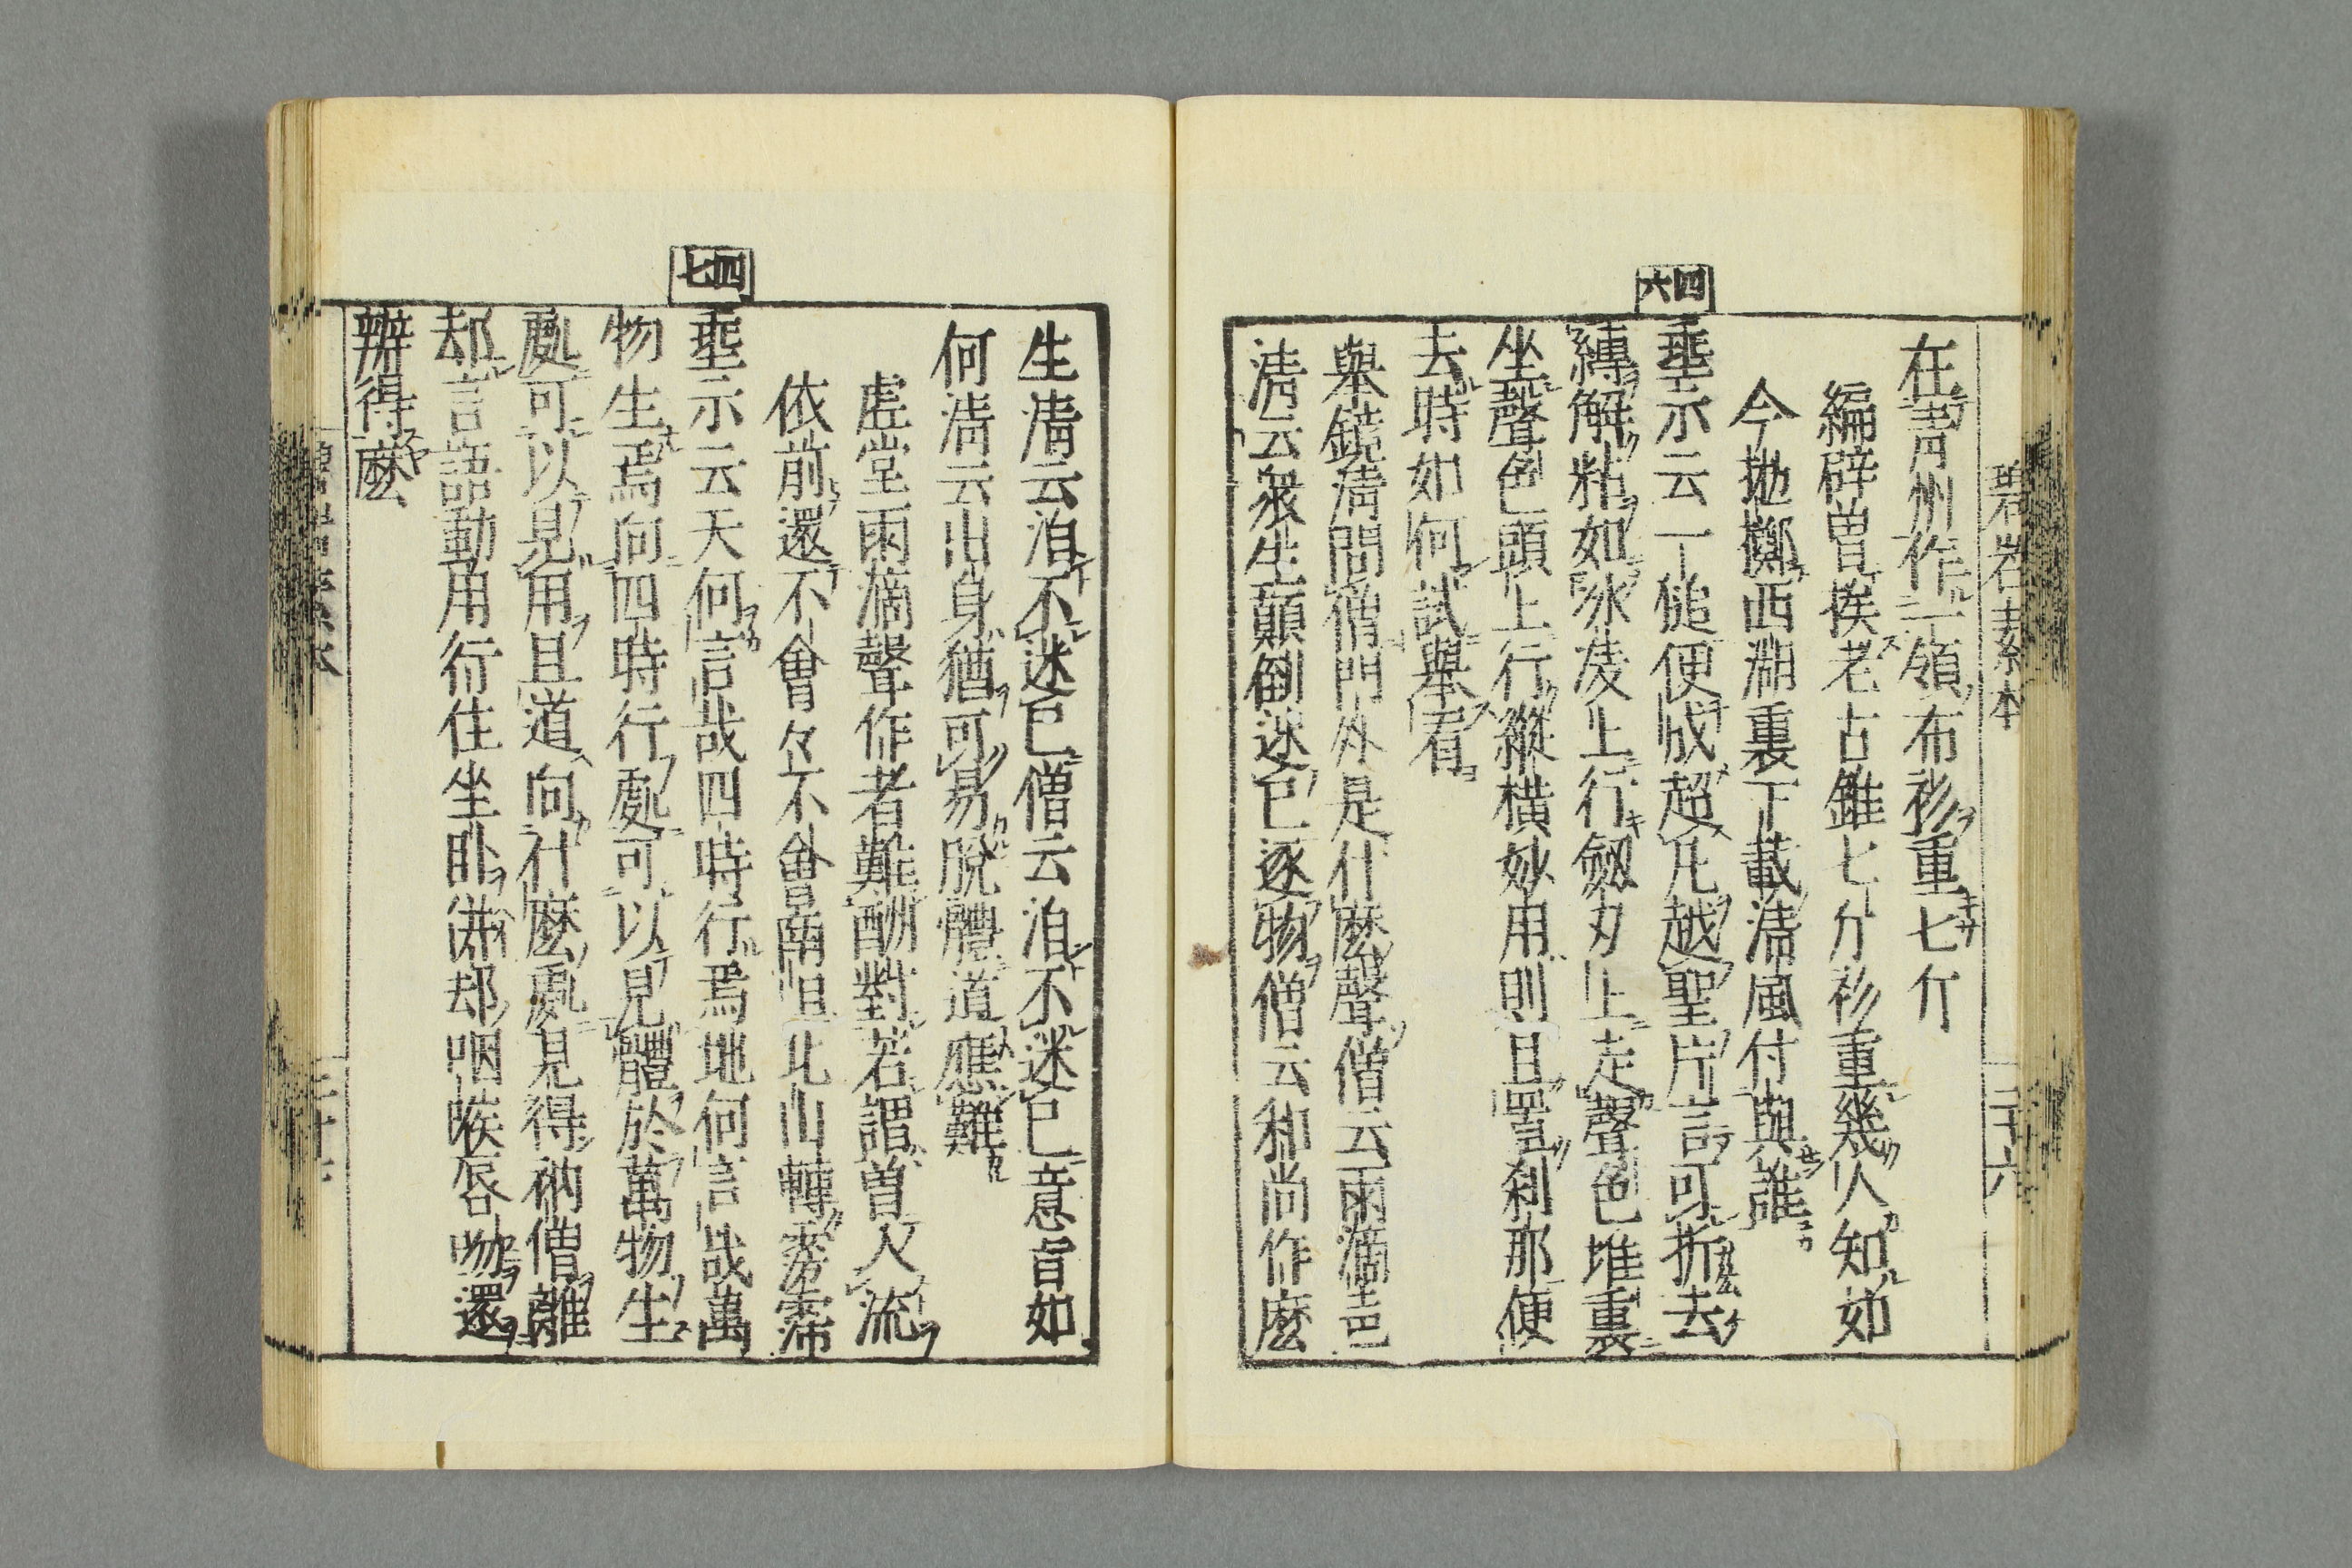 碧岩素本
二十六
在青州作一領布衫重七斤
編辟曽挨老古錐七斤衫重幾人知如
今抛擲西湖裏下載清風付與誰
四六
垂示云一槌便成超凡越聖片言可折去
縛解粘如氷凌上行劔刃上走聲色堆裏
坐聲色頭上行縱橫妙用則且置刹那便
去時如何試舉看
舉鏡清問僧門外是什麽聲僧云雨滴声
清云衆生顛倒迷己逐物僧云和尚作麽
生清云洎不迷己僧云洎不迷己意旨如
何清云出身猶可易脫體道應難
虚堂雨滴聲作者難酬對若謂曽入流
依前還不會々不會南山北山轉霶霈
四七
垂示云天何言哉四時行焉地何言哉萬
物生焉向四時行處可以見體於萬物生
處可以見用且道向什麽處見得衲僧離
却言語動用行住坐卧併却咽喉唇吻還
辨得麽